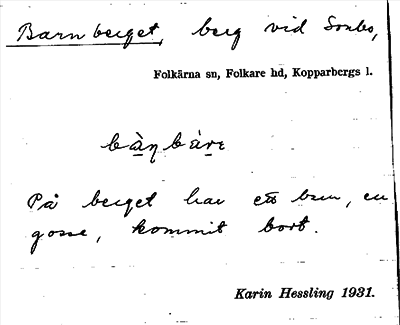 Barnberget, berg vid Sonbo,
Folkärna sn, Folkare hd, Kopparbergs l.
bà̱ṇbàrɛ
På berget har ett barn, en
gosse, kommit bort.
Karin Hessling 1931.